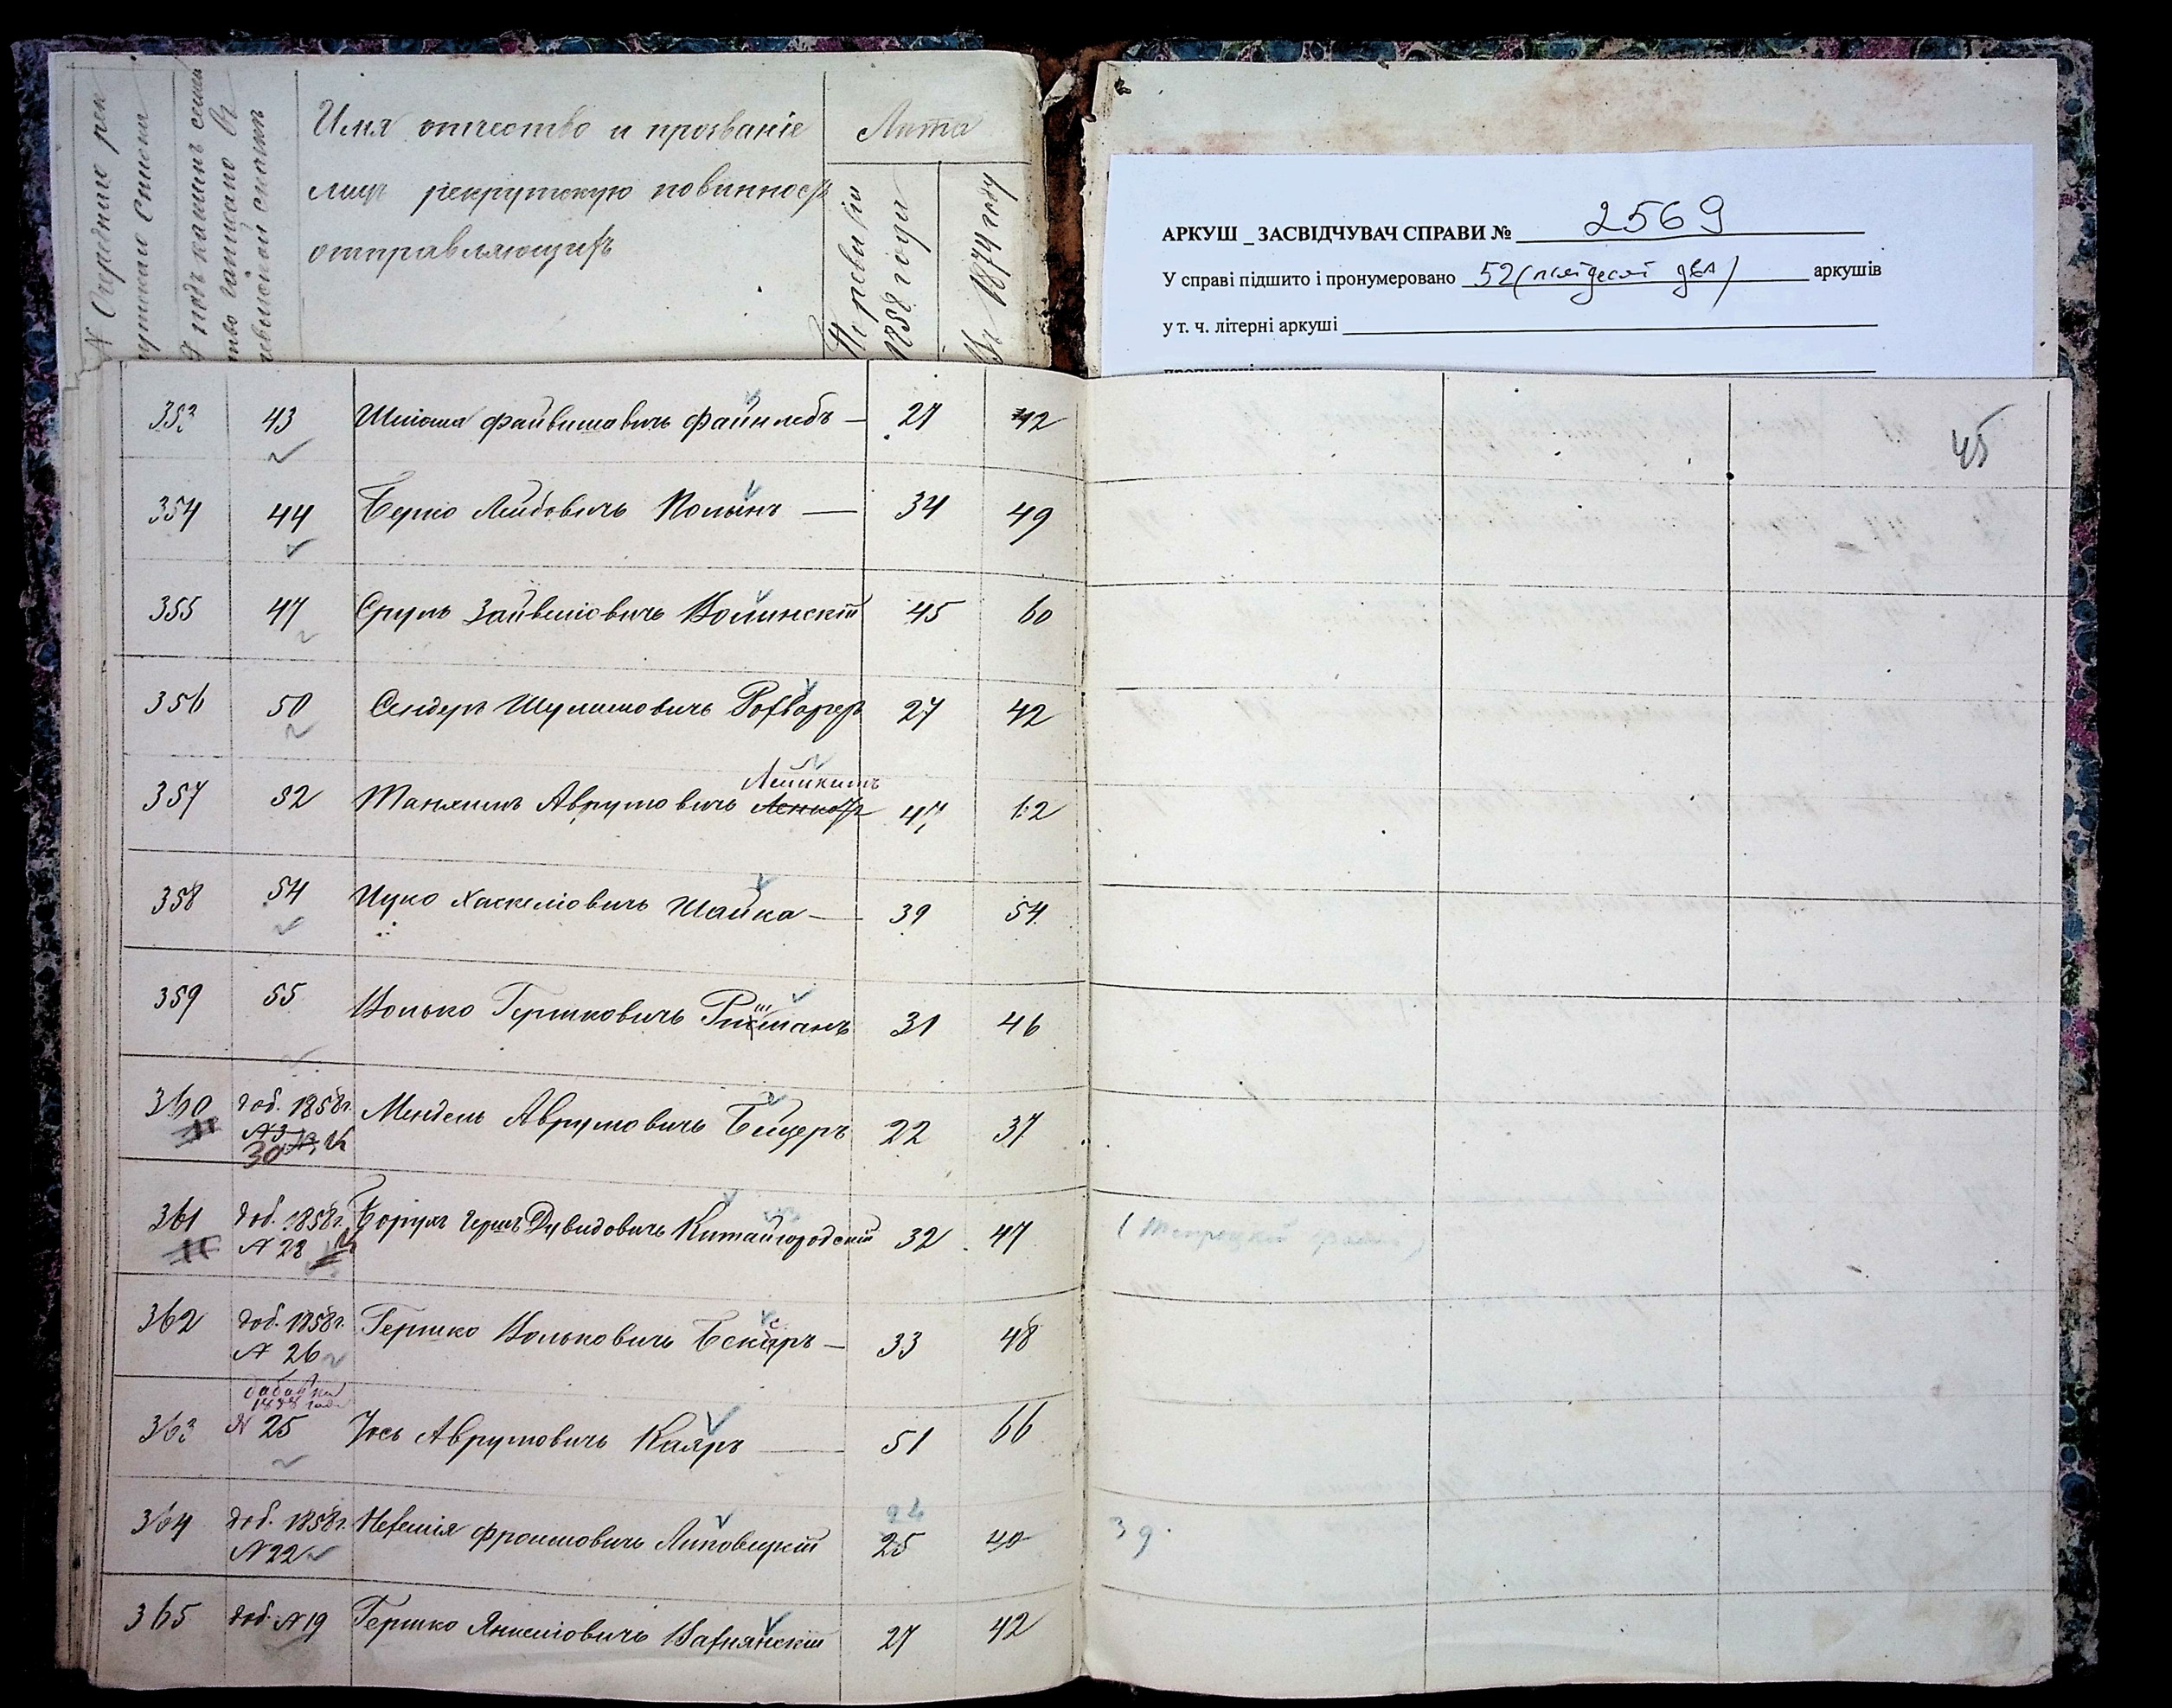 № Очередные рек
рутские списка
№ подъ какимъ семей
ство записано въ
ревизской сказкѣ
Имя отчество и прозваніе
лицъ рекрутскую повинность
отправляющихъ
Лѣта
По ревизіи
1858 года
Въ 1874 году
АРКУШ _ ЗАСВІДЧУВАЧ СПРАВИ № 2569
У справі підшито і пронумеровано 52 (пятдесят два) аркушів
у т. ч. літерні аркуші
45
353 43 Шлiома Файвишовичь Файнлебъ — 27 42
354 44 Берко Лейбовичь Полынъ — 34 49
355 47 Сруль Зайвеліовичь Волинскій 45 60
356 50 Сендеръ Шулимовичь 27 42
357 52 Манымъ Аврумовичь Лейкинъ 47 62
358 54 Ицко Хаскеліовичь Шайка — 39 54
359 55 Волько Гершковичь Ришманъ 31 46
360 доб. 1858 г. 30 Мендель Аврумовичь 22 37
361 доб. 1858 г. № 28 Борухъ Гершъ Дувидовичь Китайгородскій 32 47
362 доб. 1858 г. № 26 Гершко Вольковичь Бескеръ — 33 48
363 добавка 1858 года № 25 Іось Аврумовичь Каляръ — 51 66
364 доб. 1858 г. № 22 Нехемія Фроимовичь Липовецкій 24 25 40 39
365 доб. № 19 Гершко Янкеліовичь Вахнянскій 27 42